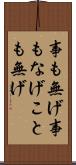 事も無げ事
もなげこと
も無げ